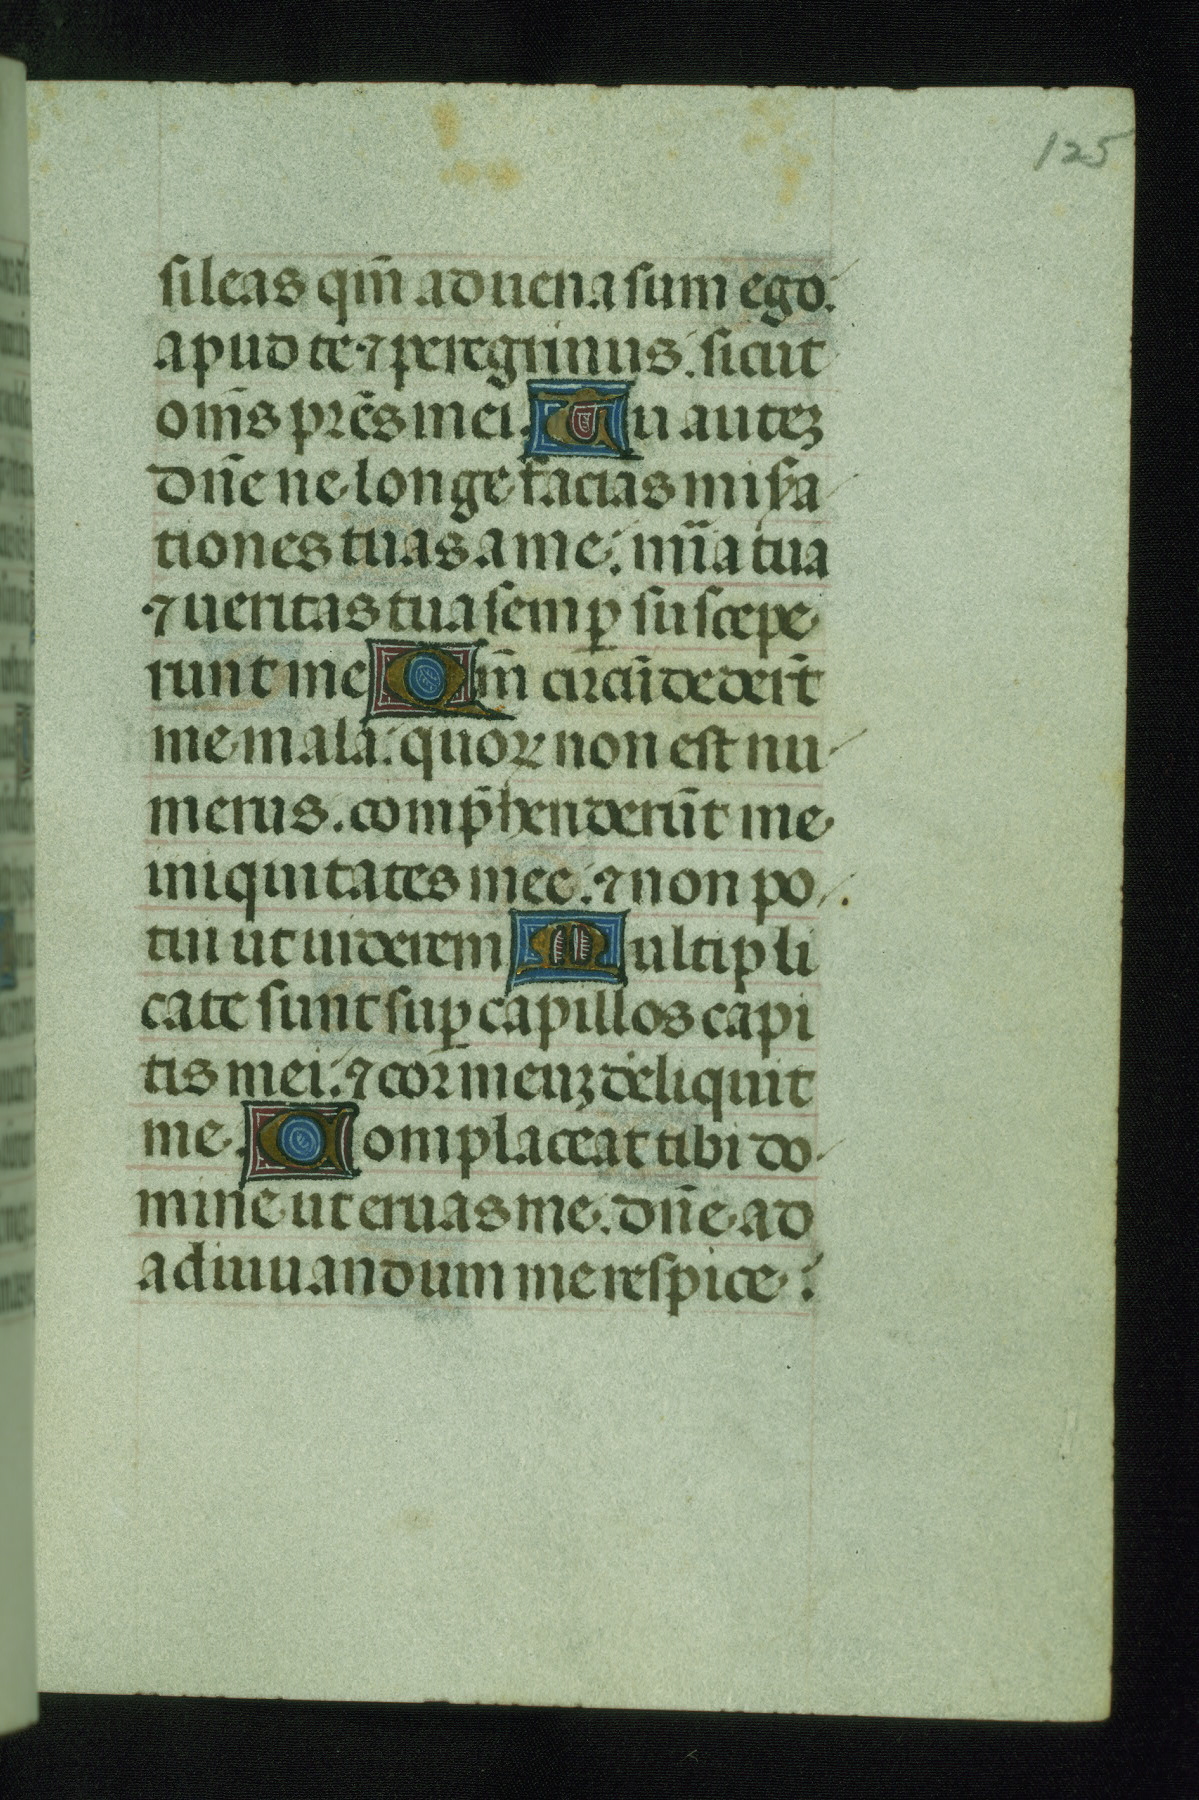 125
sileas qm̄ aduena sum ego.
apud te ⁊ peregrinus. sicut
om̄s pr̄es mei. Tu autez
dn̄e ne longe facias misera
tiones tuas a me. mīa tua
⁊ ueritas tua semꝑ suscepe
runt me Qm̄ circūdederūt
me mala. quoꝝ non est nu
merus. comp̄henderūt me
iniquitates mee. ⁊ non po
tui ut uiderem Multipli
cate sunt suꝑ capillos capi
tis mei. ⁊ cor meuz deliquit
me. Complaceat tibi do
mine ut eruas me. dn̄e ad
adiuuandum me respice.